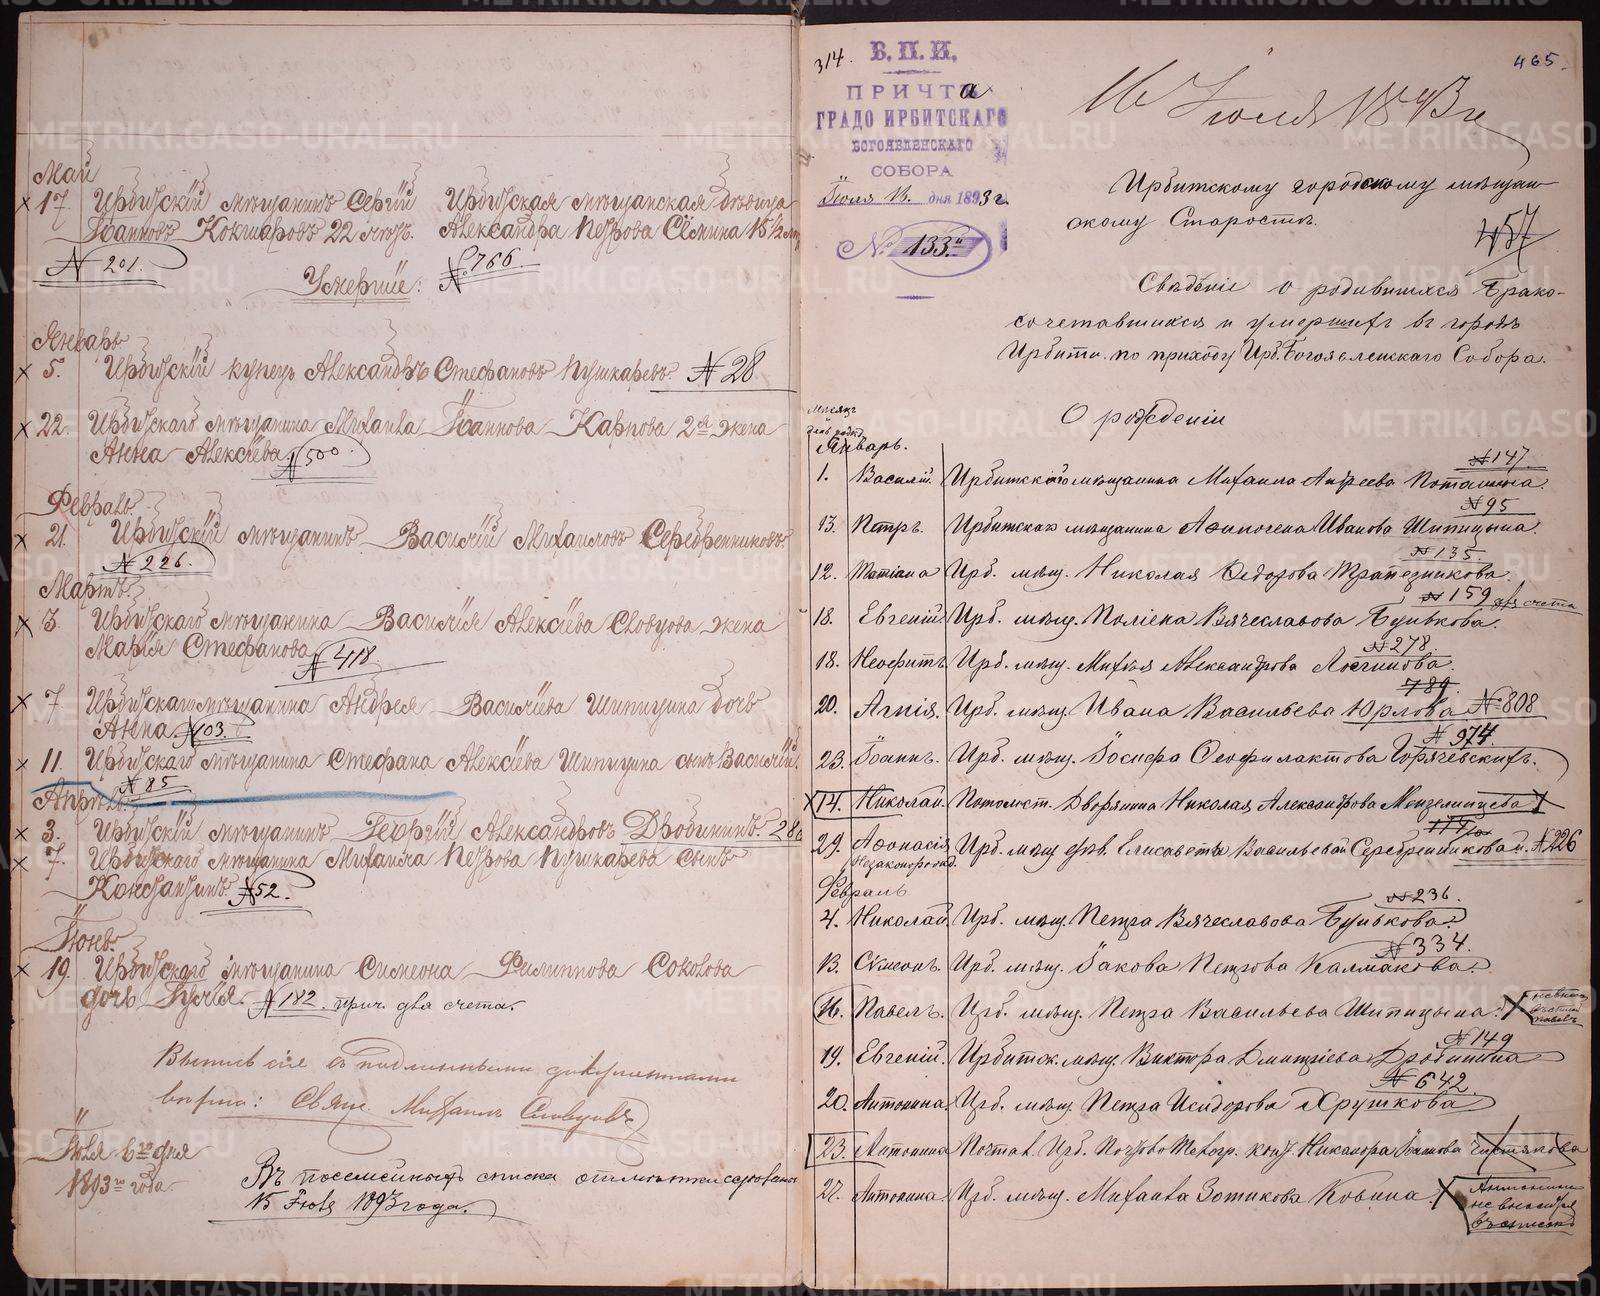 Май
х 17. Ирбитскій мѣщанинъ Сергій Ирбитская мѣщанская дѣвица
Іоанновъ Кокшаровъ 22 лѣтъ. Александра Петрова Сёмина 15½ лѣт
№ 201. № 766
Умершіе:
Январь
х 5. Ирбитскій купецъ Александръ Стефановъ Пушкаревъ. № 28
х 22. Ирбитскаго мѣщанина Михаила Іоаннова Карпова 2я жена
Анна Алексіева. № 500.
Февраль
х 21. Ирбитскій мѣщанинъ Василій Михаиловъ Серебренниковъ.
№ 226.
Мартъ.
х 3. Ирбитскаго мѣщанина Василія Алексіева Словцова жена
Марія Стефанова. № 418
х 7. Ирбитскаго мѣщанина Андрея Василіева Шипицина дочь
Анна. № 103.
х 11. Ирбитскаго мѣщанина Стефана Алексіева Шипицина сынъ Василій.
№ 85
Апрѣль
х 3. Ирбитскій мѣщанинъ Георгій Александровъ Дробининъ. 280
х 7. Ирбитскаго мѣщанина Михаила Петрова Пушкарева сынъ
Константинъ. № 52.
Іюнь.
х 19. Ирбитскаго мѣщанина Симеона Филиппова Соколова
дочь Іулія. № 182. прич. два счета.
Выпись сія съ подлинными документами
вѣрна: Свящ. Михаилъ Словцовъ
Іюля 6го дня
1893го года.
Въ посемейныхъ списка отмѣтки сдѣланы
15 Іюля 1893 года.
314.
465.
Б.П.И.
ПРИЧТа
ГРАДО ИРБИТСКАГО
БОГОЯВЛЕНСКАГО
СОБОРА
Іюля 13. дня 1893 г.
№ 133.
16 Іюля 1893 г.
Ирбитскому городскому мѣщан-
скому Старостѣ.
457
Свѣдѣніе о родившихся Брако-
сочетавшихся и умершихъ въ городѣ
Ирбити. по приходу Ирб. Богоявленскаго Собора.
О рожденіи
Мѣсяцъ
день рожд.
Январь.
№ 147.
1. Василій. Ирбитскаго мѣщанина Михаила Андреева Поташина.
№ 95
13. Петръ. Ирбитскаго мѣщанина Афиногена Иванова Шипицына.
№ 135.
12. Татіана Ирб. мѣщ. Николая Ѳедорова Трапезникова.
№ 159 два счета
18. Евгеній Ирб. мѣщ. Поліена Вячеславова Бушкова.
№ 278.
18. Неофитъ Ирб. мѣщ. Михея Александрова Логинова.
789.
20. Агнія. Ирб. мѣщ. Ивана Васильева Юрлова № 808
№ 974.
23. Іоаннъ. Ирб. мѣщ. Іосифа Ѳеофилактова Горячевскихъ.
14. Николай. Потомст. Дворянина Николая Александрова Мензелинцева
29. Аѳанасія Ирб. мѣщ. дѣв. Елисаветы Васильевой Серебренниковой. № 226
Незаконорожд.
Февраль
№ 236.
4. Николай. Ирб. мѣщ. Петра Вячеславова Бушкова.
№ 334.
13. Сѵмеонъ. Ирб. мѣщ. Іакова Петрова Калмакова.
16. Павелъ. Ирб. мѣщ. Петра Васильева Шипицына.
№ 149
19. Евгеній. Ирбитск. мѣщ. Виктора Дмитріева Дробинина
№ 642.
20. Антонина. Ирб. мѣщ. Петра Исидорова Хрушкова
23. Антонина Почтал. Ирб. Почтово Телегр. конт. Никанора Іоаннова Чистякова
27. Антонина Ирб. мѣщ. Михаила Зотикова Ковина. Антонина
не вносится
въ списокъ
METRIKI.GASO-URAL.RU